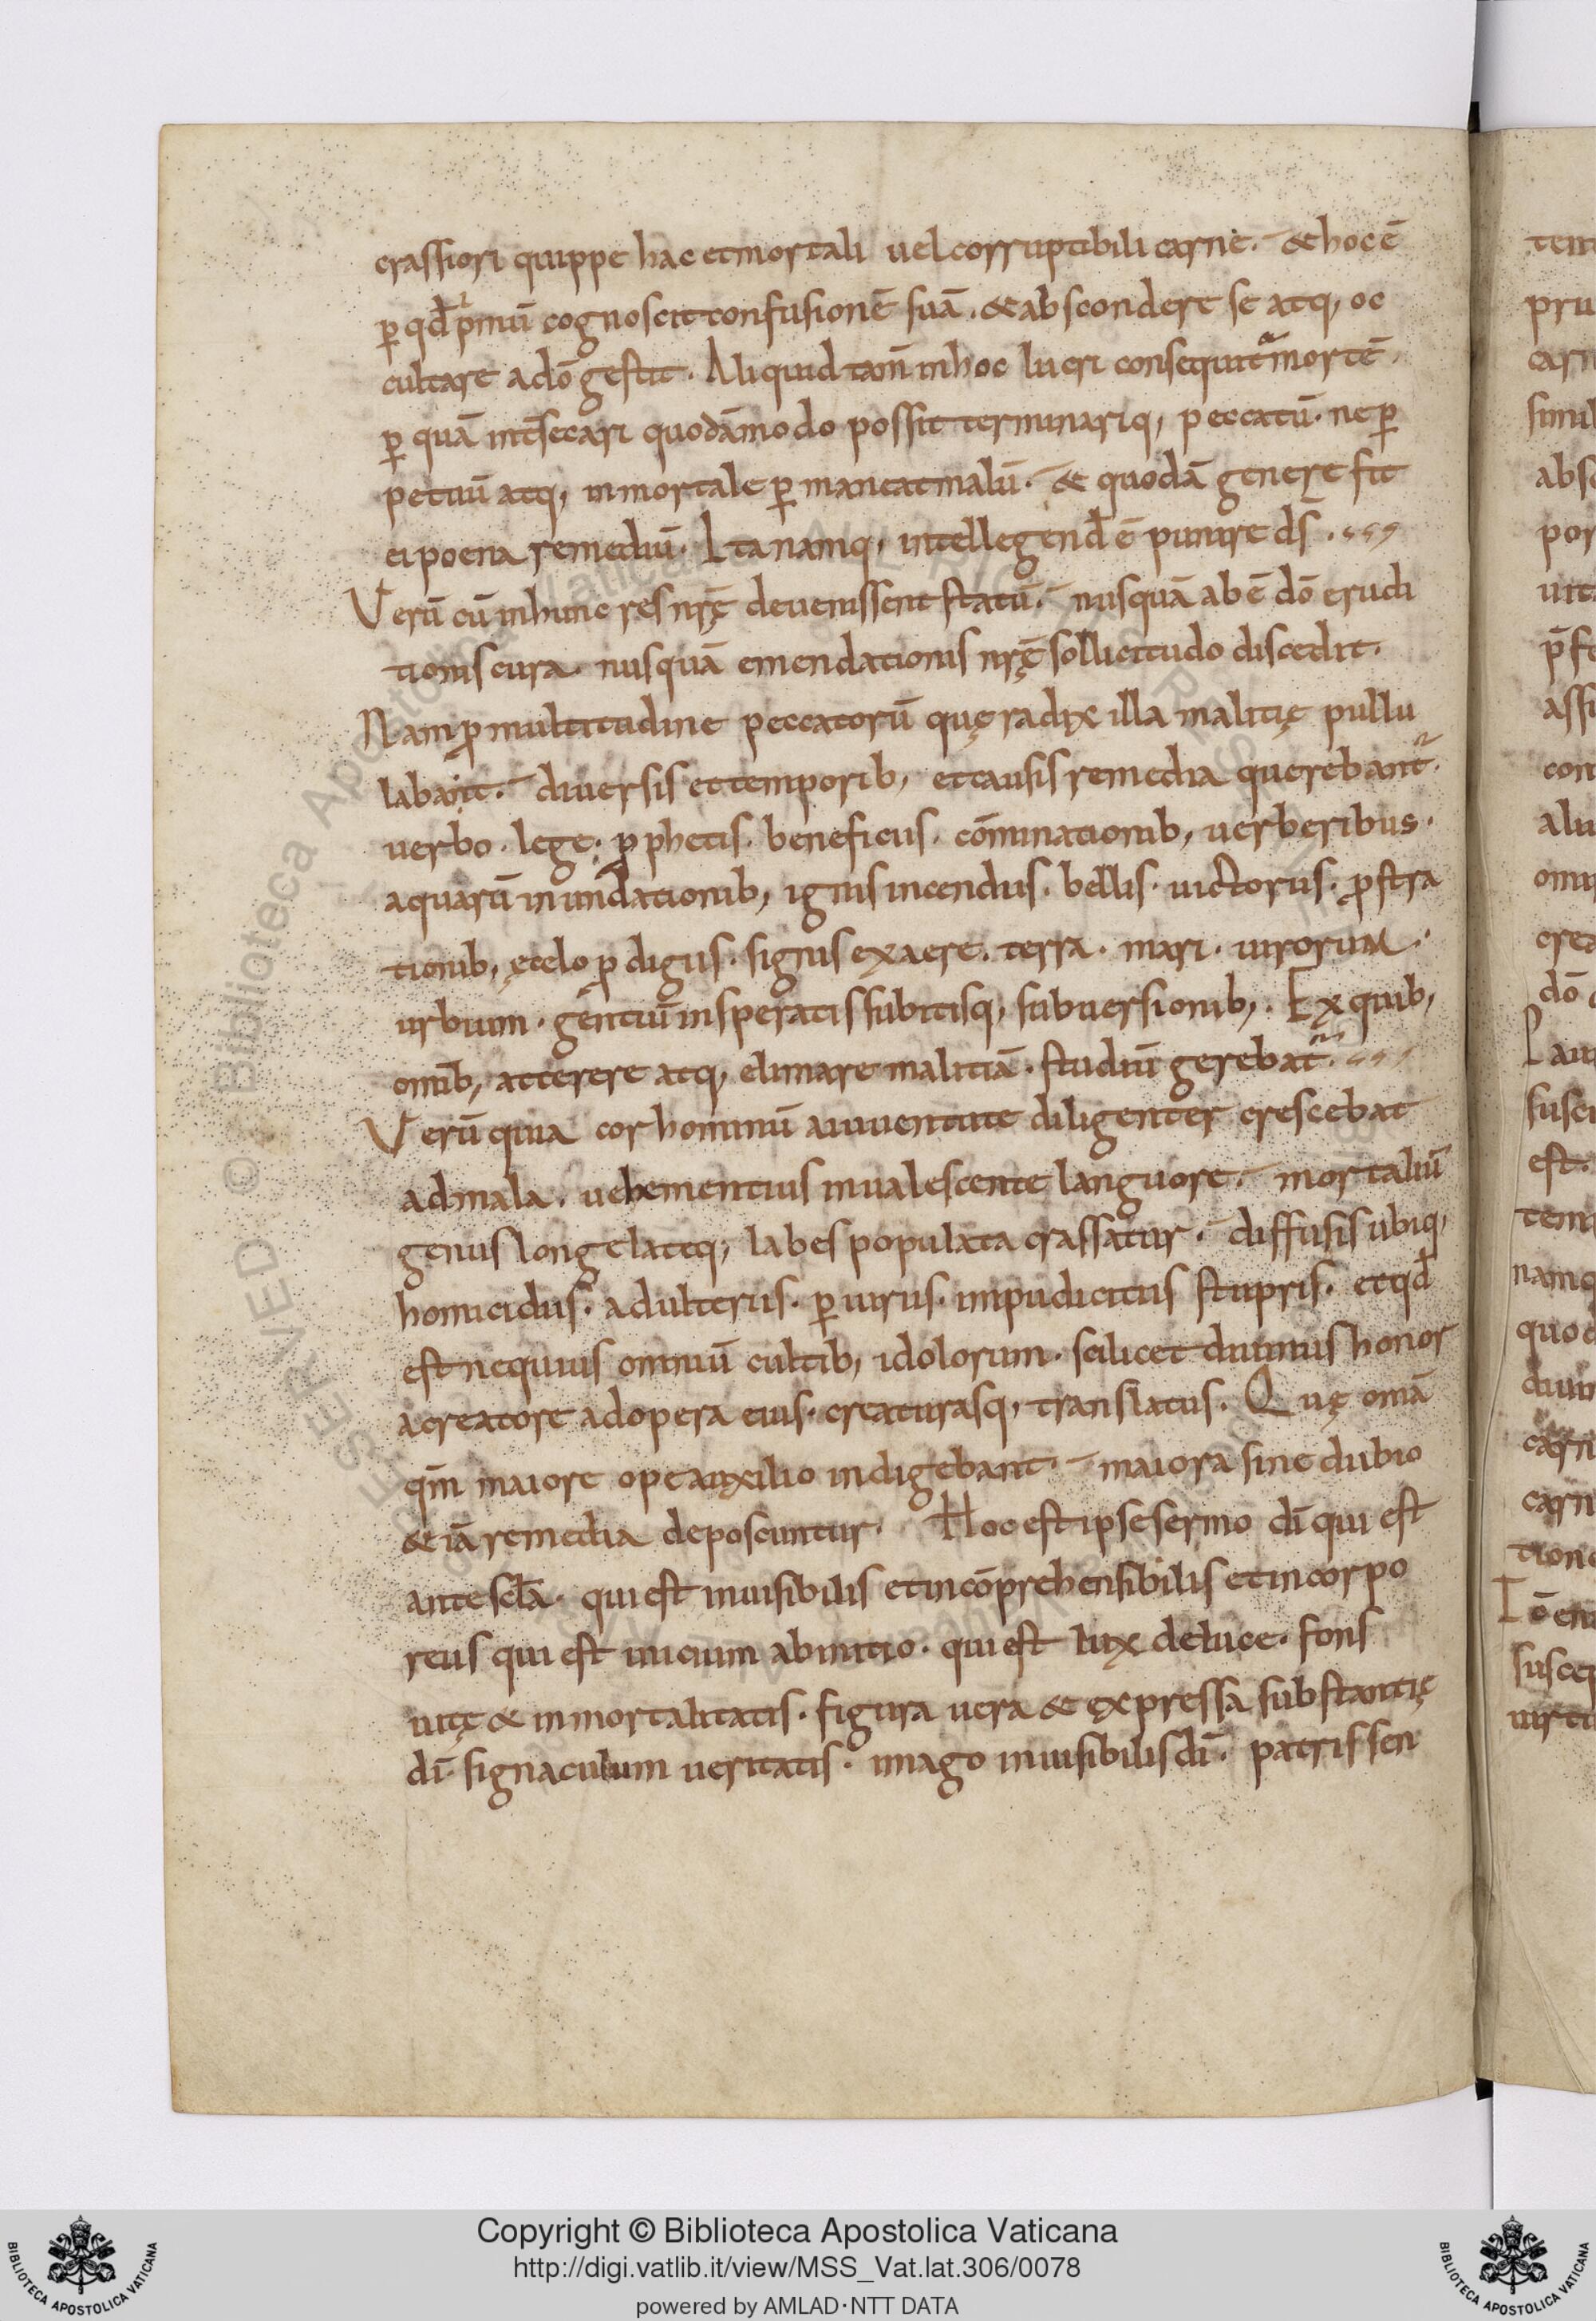 crassiori quippe hac et mortali uel corruptibili carne. & hoc ē
ꝑ qđ pͥmū cognoscit confusionē suā. & abscondere se atq; oc
cultare a dō gestit. Aliquid tam̄ in hoc lucri consequit̃ mortē.
ꝑ quā int̄secari quodāmodo possit terminariq; peccatū. ne ꝑ
petuū atq; inmortale ꝑmaneat malū. & quodā genere fit
ei poena remediū. Ita namq; intellegend̄ ē punire ds̄.
Verū cū in hunc res nr̄ę deuenissent statū. nusquā ab ē dō erudi
tionis cura. nusquā emendationis nr̄ę sollicitudo discedit.
Nam ꝓ multitudine peccatorū quę radix illa malitię pullu
labant. diuersis et temporib; et causis remedia querebant̃.
uerbo. lege. ꝓphetis. beneficiis. cōminationib; uerberibus.
aquarū inundationib; ignis incendiis. bellis. uictoriis. ꝓstra
tionib; ę celo ꝓdigiis. signis ex aere. terra. mari. uirorum.
urbium. gentiū insperatis subitisq; subuersionib;. Ex quib;
omīb; atterere atq; elimare malitiā. studiū gerebat̃.
Verū quia cor hominū a iuuentute diligenter crescebat
ad mala. uehementius inualescente languore. mortaliū
genus longe lateq; labes populata crassatur. diffusis ubiq;
homicidiis. adulteriis. ꝑiuriis. impudicitiis stupris. et qđ
est nequius omniū cultib; idolorum. scilicet diuinus honor
a creatore ad opera eius. creaturasq; translatus. Quę omā
qm̄ maiore ope auxilio indigebant. maiora sine dubio
& iā remedia deposcuntur. Hoc est ipse sermo dī qui est
ante scl̄a. qui est inuisibilis et incōprehensibilis et incorpo
reus qui est inicium ab initio. qui est lux de luce. fons
uitę & inmortalitatis. figura uera & expressa substantię
dī. signaculum ueritatis. imago inuisibilis dī. patris sen
tem
pru
carn
simil
absc
por
uita
p̄f
assi
con
aliu
omn
crea
dō
Lau
susci
est.
tem
namq
quod
diuin
carn
carn
tione
Iō en
suscep
uirtu
Copyright © Biblioteca Apostolica Vaticana
http://digi.vatlib.it/view/MSS_Vat.lat.306/0078
powered by AMLAD·NTT DATA
BIBLIOTECA APOSTOLICA VATICANA
BIBLIOTECA APOSTOLICA VATICANA